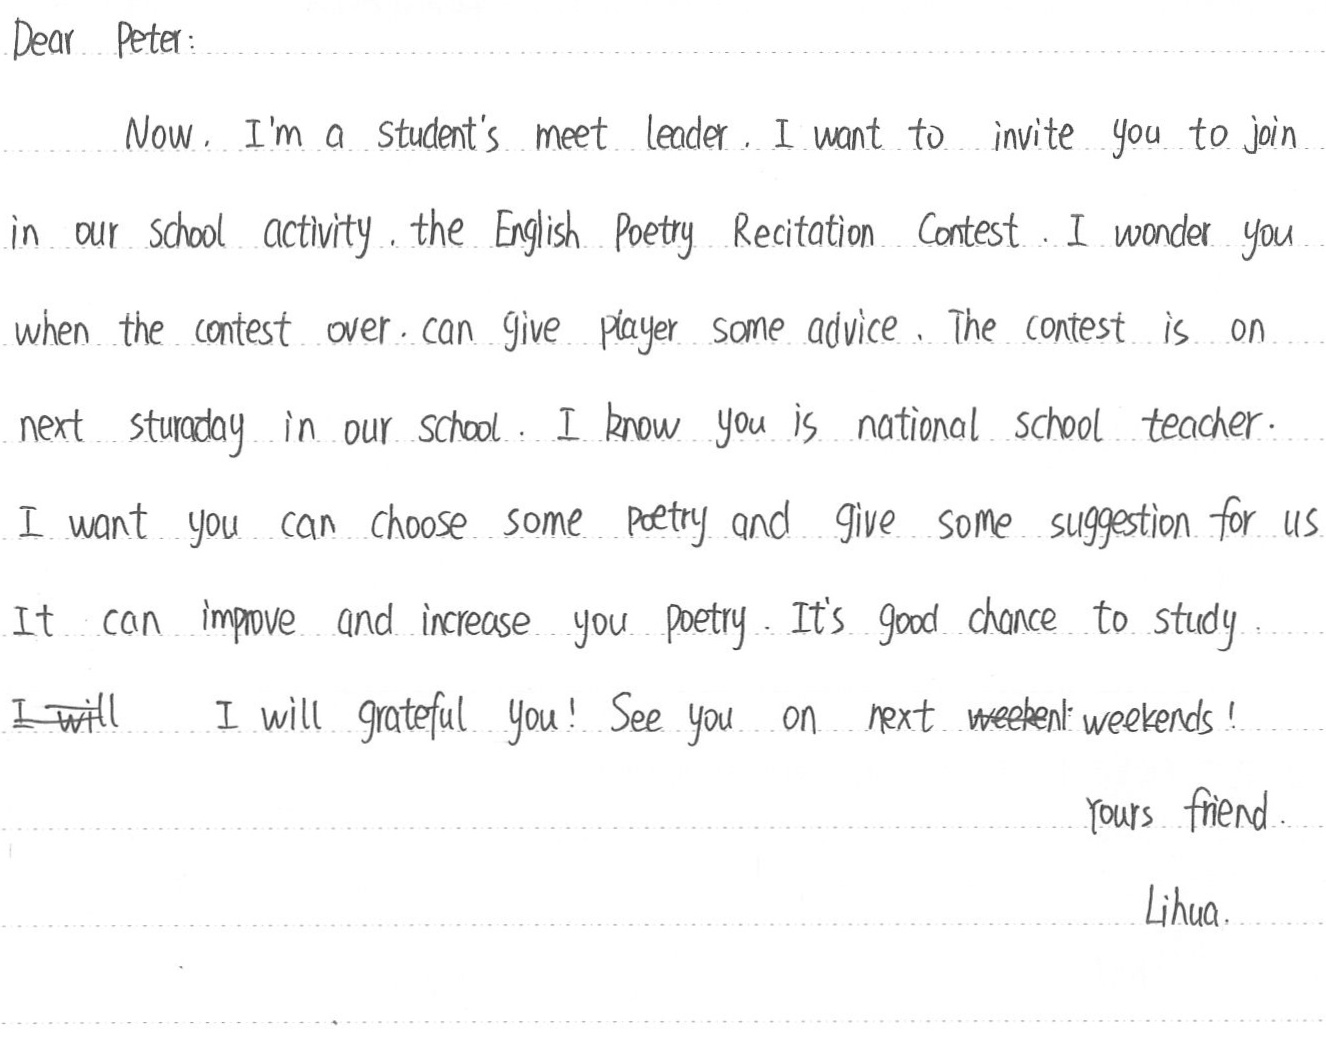 Dear Peter:
Now. I'm a student's meet leader. I want to invite you to join
in our school activity. the English Poetry Recitation Contest. I wonder you
when the contest over. can give player some advice. The contest is on
next sturaday in our school. I know you is national school teacher.
I want you can choose some poetry and give some suggestion for us
It can improve and increase you poetry. It's good chance to study.
I will I will grateful you! See you on next weekend weekends!
Yours friend.
Lihua.